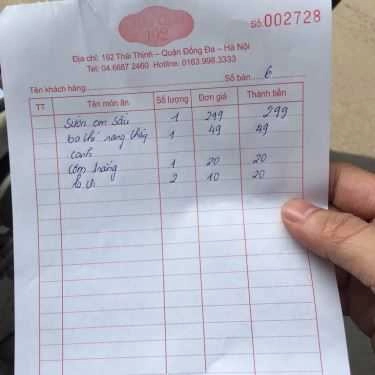 192
Số 002728
Địa chỉ: 192 Thái Thịnh – Quận Đống Đa – Hà Nội
Tel: 04.6687 2460 Hotline: 0163.998.3333
Tên khách hàng: Số bàn: 6
TT Tên món ăn Số lượng Đơn giá Thành tiền
Sườn om sấu 1 299 299
ba chỉ rang cháy 1 49 49
canh
Cơm trắng 1 20 20
2 10 20